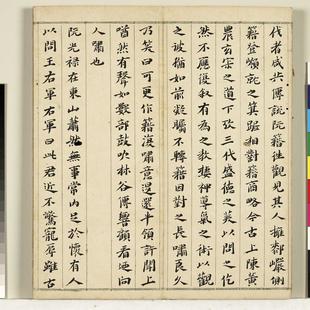 伐者咸共傳說阮籍往觀見其人擁厀巖側
籍登嶺就之箕踞相對籍商略今古上陳黃
農玄寂之道下攷三代盛德之美以問之仡
然不應復叙有為之教棲神導氣之術以觀
之彼猶如前凝矚不轉籍因對之長嘯良久
乃笑曰可更作籍復嘯意盡退半嶺許聞上
㗜然有聲如數部鼓吹林谷傳響顧看迺向
人嘯也
阮光祿在東山蕭然無事常內足於懷有人
以問王右軍右軍曰此君近不驚寵辱雖古